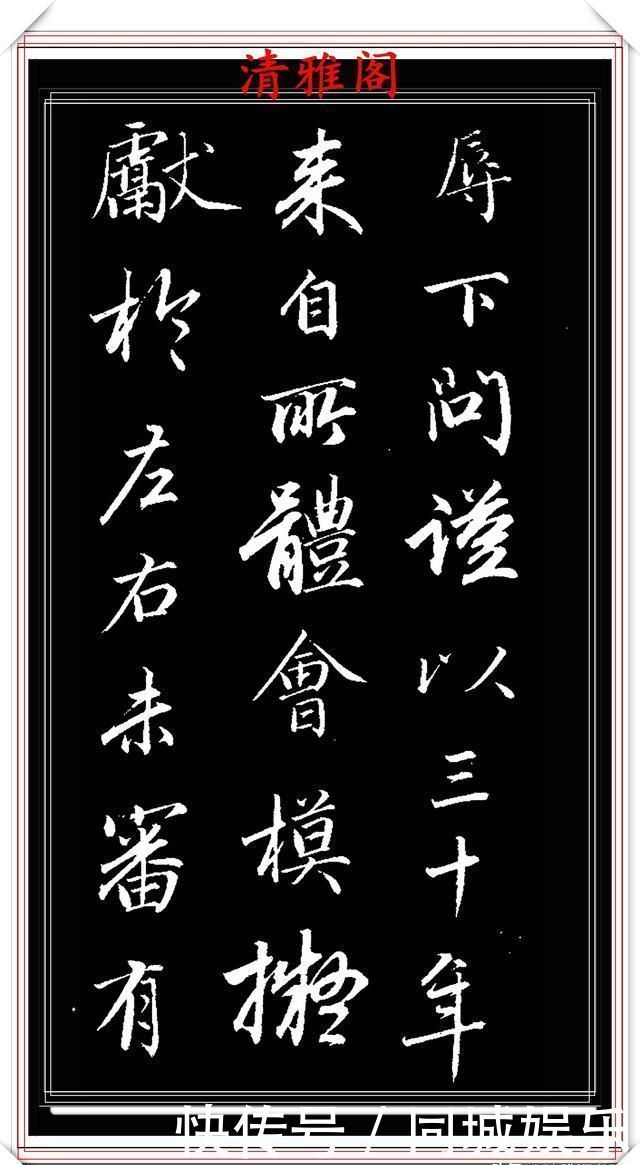 清雅阁
辱下问謹以三十年
来自所體會模擬
獻於左右未審有
快传号/同城娱乐